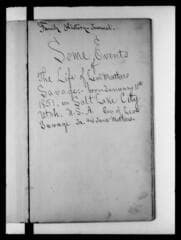 Family History Journal.
Some Events
of
The Life of Levi Mathers
Savage:- born January 11th
1851, in Salt Lake City
Utah. U.S.A. Son of Levi
Savage Jr. and Jane Mathers.